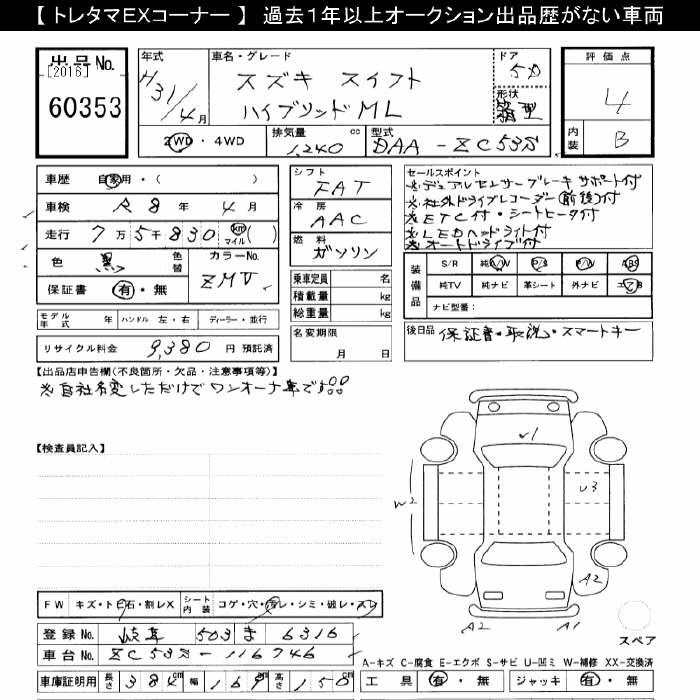 【 トレタマEXコーナー 】 過去1年以上オークション出品歴がない車両
出品No.
[2016]
60353
年式
H31/4月
車名・グレード
スズキ スイフト
ハイブリッドML
ドア
5D
形状
箱型
評価点
4
内装
B
2WD ・ 4WD
排気量
1,240 cc
型式
DAA-ZC53S
車歴 自家用・( )
車検 R8年 4月
走行 7万5千830 km マイル ( )
色 黒 色替
カラーNo.
ZMV
保証書 有・無
モデル年式 年 ハンドル 左・右 ディーラー・並行
リサイクル料金 9,380 円 預託済
シフト
FAT
冷房
AAC
燃料
ガソリン
乗車定員 名
積載量 kg
総重量 kg
名変期限
月 日
セールスポイント
※デュアルセンサーブレーキサポート付
※社外ドライブレコーダー(前後)付
※ETC付・シートヒータ付
※LEDヘッドライト付
※オートドライブ付
装備品
S/R 純A/W P/S P/W ABS
純TV 純ナビ 革シート 外ナビ エアB
ナビ型番:
後日品 保証書・取説・スマートキー
【出品店申告欄(不良箇所・欠品・注意事項等)】
※自社名変しただけでワンオーナ車です!!
【検査員記入】
U1
W2
U3
A2
A2
A1
スペア
FW キズ・トビ石・割レX シート内装 コゲ・穴・汚レ・シミ・破レ・スレ
登録No. 岐阜 503 ま 6316
車台No. ZC53S-116746
車庫証明用 長さ 384 cm 幅 169 cm 高さ 150 cm
A-キズ C-腐食 E-エクボ S-サビ U-凹ミ W-補修 XX-交換済
工具 有・無 ジャッキ 有・無